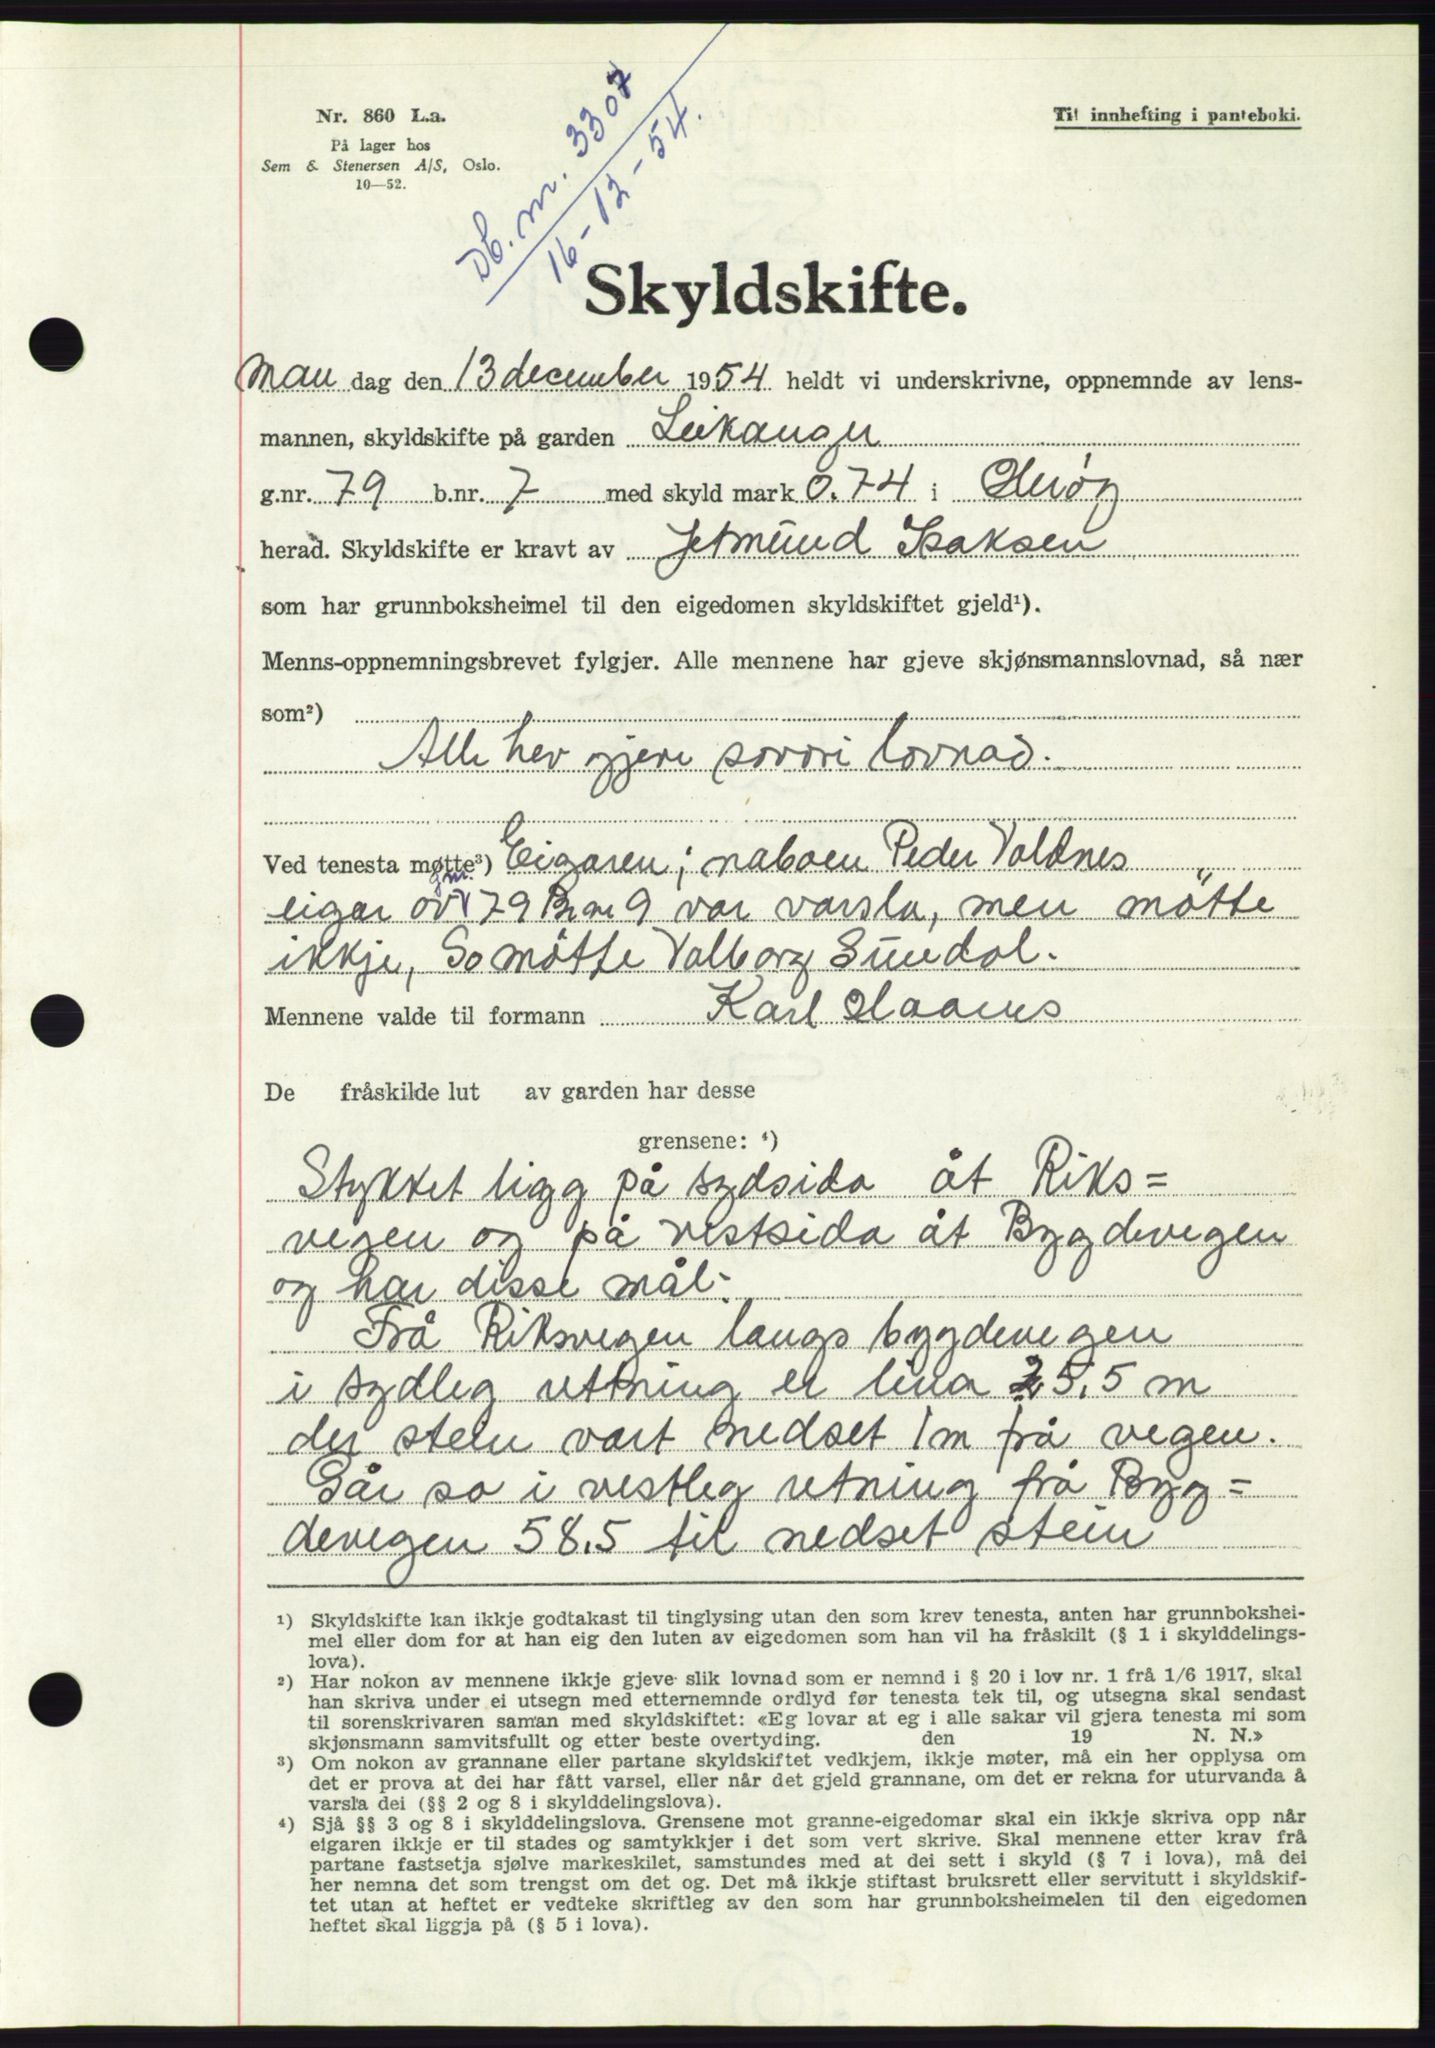 Nr. 860 L.a.
På lager hos
Sem & Stenersen A/S, Oslo.
10—52.
Db. nr. 3307
16-12-54.
Til innhefting i panteboki.
Skyldskifte.
Man dag den 13 december 1954 heldt vi underskrivne, oppnemnde av lens-
mannen, skyldskifte på garden Leikanger
g.nr. 79 b.nr. 7 med skyld mark 0.74 i Herøy
herad. Skyldskifte er kravt av Jetmund Isaksen
som har grunnboksheimel til den eigedomen skyldskiftet gjeld¹).
Menns-oppnemningsbrevet fylgjer. Alle mennene har gjeve skjønsmannslovnad, så nær
som²)
Alle hev gjeve lovnad.
Ved tenesta møtte³) Eigaren; naboen Peder Voldnes
gnr.
eigar av 79 Br nr 9 var varsla, men mötte
ikkje, So mötte Valborg Sundal.
Mennene valde til formann Karl
De fråskilde lut av garden har desse
grensene: ⁴)
Stykket ligg på sydsida åt Riks=
vegen og på vestsida åt Bygdevegen
og har disse mål:
Frå Riksvegen langs bygdevegen
i sydleg retning er lina 25.5 m
der stein vart nedset 1 m frå vegen.
Går so i vestleg retning frå Byg=
devegen 58.5 til nedset stein
¹) Skyldskifte kan ikkje godtakast til tinglysing utan den som krev tenesta, anten har grunnbokshei-
mel eller dom for at han eig den luten av eigedomen som han vil ha fråskilt (§ 1 i skylddelings-
lova).
²) Har nokon av mennene ikkje gjeve slik lovnad som er nemnd i § 20 i lov nr. 1 frå 1/6 1917, skal
han skriva under ei utsegn med etternemnde ordlyd før tenesta tek til, og utsegna skal sendast
til sorenskrivaren saman med skyldskiftet: «Eg lovar at eg i alle sakar vil gjera tenesta mi som
skjønsmann samvitsfullt og etter beste overtyding. den 19 N. N.»
³) Om nokon av grannane eller partane skyldskiftet vedkjem, ikkje møter, må ein her opplysa om
det er prova at dei har fått varsel, eller når det gjeld grannane, om det er rekna for uturvanda å
varsla dei (§§ 2 og 8 i skylddelingslova).
⁴) Sjå §§ 3 og 8 i skylddelingslova. Grensene mot granne-eigedomar skal ein ikkje skriva opp når
eigaren ikkje er til stades og samtykkjer i det som vert skrive. Skal mennene etter krav frå
partane fastsetja sjølve markeskilet, samstundes med at dei sett i skyld (§ 7 i lova), må dei
her nemna det som trengst om det og. Det må ikkje stiftast bruksrett eller servitutt i skyldskif-
tet utan at heftet er vedteke skriftleg av den som har grunnboksheimelen til den eigedomen
heftet skal liggja på (§ 5 i lova).